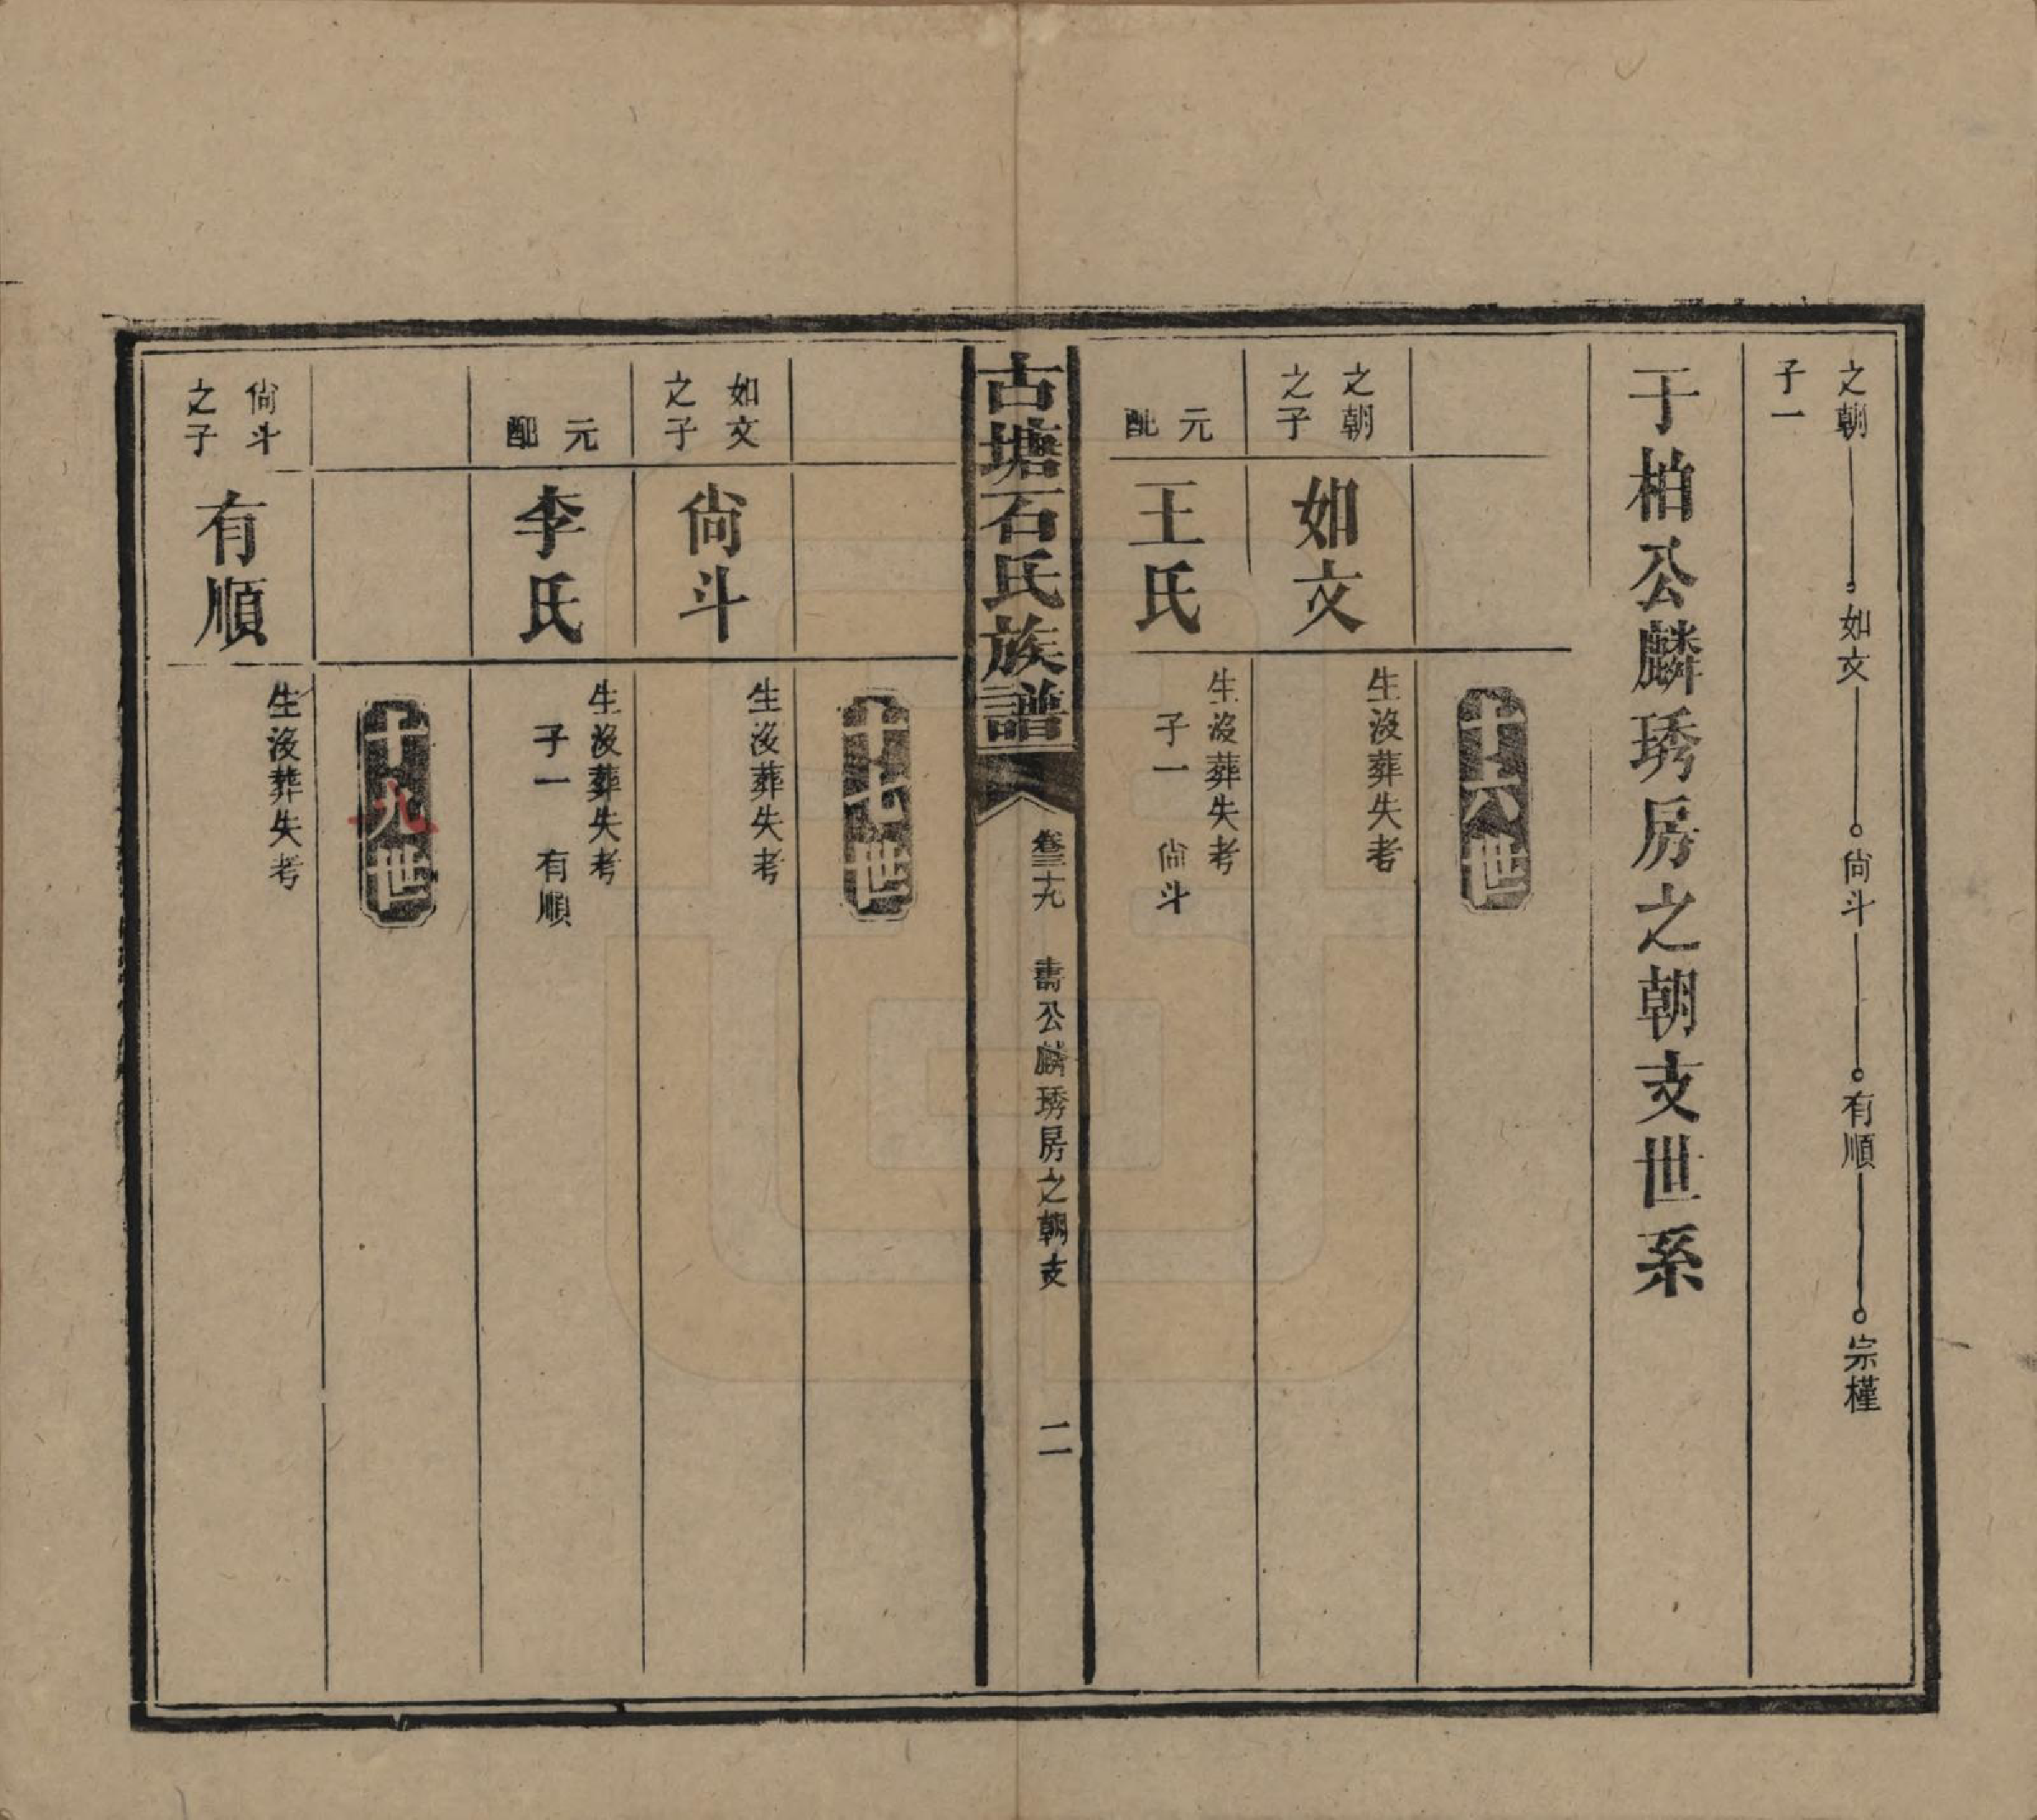 之朝 如文 尙斗 有順 宗槿
子一
于柏公麟琇房之朝支世系
十六世
之朝
之子
如文
生沒葬失考
元
配
王氏
生沒葬失考
子一 尙斗
古塘石氏族譜 卷三十九 壽公麟琇房之朝支 二
十七世
如文
之子
尙斗
生沒葬失考
元
配
李氏
生沒葬失考
子一 有順
十八世
尙斗
之子
有順
生沒葬失考